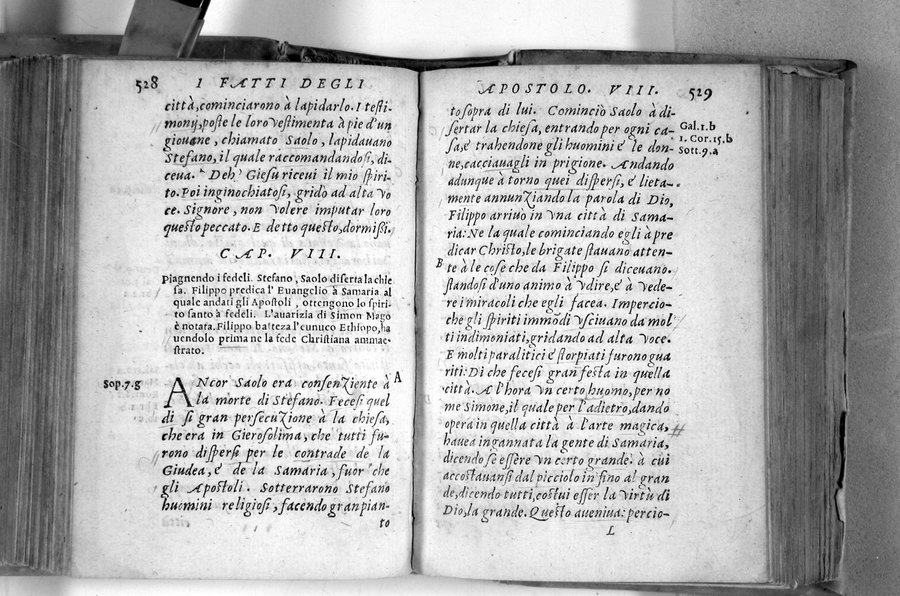 528 I FATTI DEGLI
città, cominciarono à lapidarlo. I testi-
monij, poste le loro vestimenta à pie d'un
giouane, chiamato Saolo, lapidauano
Stefano, il quale raccomandandosi, di-
ceua. Deh' Giesu riceui il mio spiri-
to. Poi inginochiatosi, gridò ad alta vo
ce. Signore, non volere imputar loro
questo peccato. E detto questo, dormissi.
CAP. VIII.
Piagnendo i fedeli. Stefano, Saolo diserta la chie
sa. Filippo predica l'Euangelio à Samaria al
quale andati gli Apostoli, ottengono lo spiri-
to santo à fedeli. L'auarizia di Simon Mago
è notata. Filippo batteza l'eunuco Ethiopo, ha
uendolo prima ne la fede Christiana ammae-
strato.
Sop.7.g
A
ANcor Saolo era consenziente à
la morte di Stefano. Fecesi quel
dì si gran persecuzione à la chiesa,
che era in Gierosolima, che tutti fu-
rono dispersi per le contrade de la
Giudea, e de la Samaria, fuor che
gli Apostoli. Sotterrarono Stefano
huomini religiosi, facendo gran pian-
to
APOSTOLO. VIII. 529
to sopra di lui. Cominciò Saolo à di-
sertar la chiesa, entrando per ogni ca-
sa, e trahendone gli huomini e le don-
ne, cacciauagli in prigione. Andando
adunque à torno quei dispersi, e lieta-
mente annunziando la parola di Dio,
Filippo arriuò in vna città di Sama-
ria: Ne la quale cominciando egli à pre
dicar Christo, le brigate stauano atten-
te à le cose che da Filippo si diceuano.
standosi d'uno animo à vdire, e à vede-
re i miracoli che egli facea. Impercio-
che gli spiriti immõdi vsciuano da mol
ti indimoniati, gridando ad alta voce.
E molti paralitici e storpiati furono gua
riti: Di che fecesi gran festa in quella
città. A l'hora vn certo huomo, per no
me Simone, il quale per l'adietro, dando
opera in quella città à l'arte magica,
hauea ingannata la gente di Samaria,
dicendo se essere vn certo grande: à cui
accostauansi dal picciolo in fino al gran
de, dicendo tutti, costui esser la virtù di
Dio, la grande. Questo aueniua: percio-
L
Gal.1.b
1. Cor.15.b
Sott.9.a
B